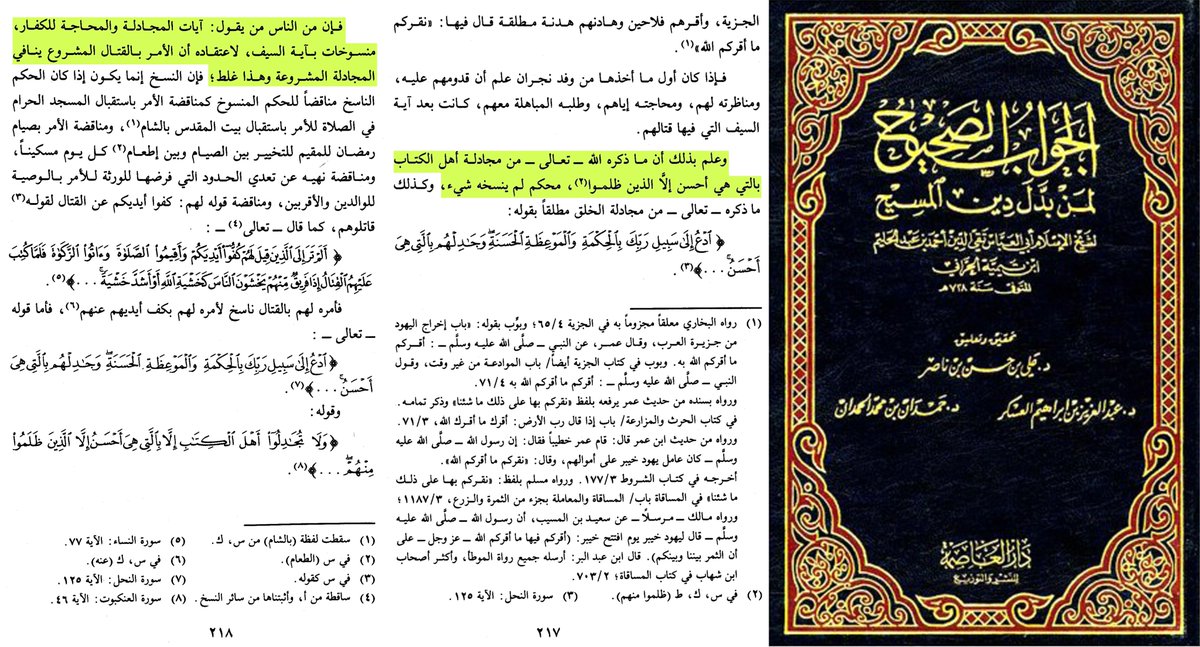 الجواب الصحيح
لمن بدل دين المسيح
لشيخ الإسلام أبي العباس تقي الدين أحمد بن عبد الحليم
ابن تيمية الحراني
المتوفى سنة ٧٢٨ هـ
تحقيق وتعليق
د. علي بن حسن بن ناصر
د. عبد العزيز بن إبراهيم العسكر د. حمدان بن محمد الحمدان
دار العاصمة
للنشر والتوزيع
الجزية، وأقرهم فلاحين وهادنهم هدنة مطلقة قال فيها: «نقركم
ما أقركم الله»(١).
فإذا كان أول ما أخذها من وفد نجران علم أن قدومهم عليه،
ومناظرته لهم، ومحاجته إياهم، وطلبه المباهلة معهم، كانت بعد آية
السيف التي فيها قتالهم.
وعلم بذلك أن ما ذكره الله ــ تعالى ــ من مجادلة أهل الكتاب
بالتي هي أحسن إلَّا الذين ظلموا(٢)، محكم لم ينسخه شيء، وكذلك
ما ذكره ــ تعالى ــ من مجادلة الخلق مطلقاً بقوله:
﴿ ٱدْعُ إِلَىٰ سَبِيلِ رَبِّكَ بِٱلْحِكْمَةِ وَٱلْمَوْعِظَةِ ٱلْحَسَنَةِ وَجَٰدِلْهُم بِٱلَّتِى هِىَ
أَحْسَنُ . . . ﴾(٣).
(١) رواه البخاري معلقاً مجزوماً به في الجزية ٦٥/٤؛ وبوَّب بقوله: «باب إخراج اليهود
من جزيرة العرب، وقال عمـر، عن النبـي ــ صلَّى الله عليـه وسلَّم ــ : أقـركـم
ما أقركم الله به. وبوب في كتاب الجزية أيضاً/ باب الموادعـة من غير وقت، وقـول
النبـي ــ صلَّى الله عليه وسلَّم ــ : أقركم ما أقركم الله به ٧١/٤.
ورواه بسنده من حديث عمر يرفعه بلفظ «نقركم بها على ذلك ما شئنا» وذكر تمامـه.
في كتاب الحرث والمزارعة/ باب إذا قال رب الأرض: أقرك ما أقرك الله، ٧١/٣.
ورواه من حديث ابن عمر قال: قام عمر خطيباً فقال: إن رسول الله ــ صلَّى الله عليه
وسلَّم ــ كان عامل يهود خيبر على أموالهم، وقال: «نقركم ما أقركم الله».
أخرجـه في كتـاب الشـروط ١٧٧/٣. ورواه مسلم بلفظ: «نقـركم بها على ذلك
ما شئنا» في المساقاة باب/ المساقاة والمعاملة بجزء من الثمرة والزرع، ١١٨٧/٣؛
ورواه مـالك ــ مـرسـلاً ــ عن سعيـد بن المسيب، أن رسـول الله ــ صلَّى الله عليـه
وسلَّم ــ قال ليهود خيبر يوم افتتح خيبر: (أقركم فيها ما أقركم الله ــ عز وجل ــ على
أن الثمر بيننا وبينكم). قال ابن عبد البر: أرسله جميع رواة الموطأ، وأكثـر أصحاب
ابن شهاب في كتاب المساقاة؛ ٧٠٣/٢.
(٢) في س، ك، ط (ظلموا منهم). (٣) سورة النحل: الآية ١٢٥.
٢١٧
فـإن من النـاس من يقـول: آيات المجـادلـة والمحـاجـة للكفـار،
منسوخات بـآيـة السيف، لاعتقاده أن الأمـر بـالقتـال المشـروع ينـافي
المجادلة المشروعة وهـذا غلط؛ فإن النسخ إنما يكون إذا كان الحكم
الناسخ مناقضاً للحكم المنسوخ كمناقضة الأمر باستقبال المسجد الحرام
في الصلاة للأمر باستقبال بيت المقدس بالشام(١)، ومناقضة الأمر بصيام
رمضـان للمقيم للتخييـر بين الصيـام وبين إطعـام(٢) كـل يـوم مسكينـاً،
ومنـاقضة نهيـه عن تعدي الحدود التي فرضهـا للورثة للأمـر بالـوصيـة
للوالدين والأقربين، ومناقضة قوله لهم: كفوا أيديكم عن القتال لقوله(٣)
قاتلوهم، كما قال ــ تعالى(٤) ــ :
﴿ أَلَمْ تَرَ إِلَى ٱلَّذِينَ قِيلَ لَهُمْ كُفُّوٓا۟ أَيْدِيَكُمْ وَأَقِيمُوا۟ ٱلصَّلَوٰةَ وَءَاتُوا۟ ٱلزَّكَوٰةَ فَلَمَّا كُتِبَ
عَلَيْهِمُ ٱلْقِتَالُ إِذَا فَرِيقٌ مِّنْهُمْ يَخْشَوْنَ ٱلنَّاسَ كَخَشْيَةِ ٱللَّهِ أَوْ أَشَدَّ خَشْيَةً . . . ﴾(٥).
فأمره لهم بالقتال ناسخ لأمره لهم بكف أيديهم عنهم(٦)، فأما قوله
ــ تعالى ــ :
﴿ ٱدْعُ إِلَىٰ سَبِيلِ رَبِّكَ بِٱلْحِكْمَةِ وَٱلْمَوْعِظَةِ ٱلْحَسَنَةِ وَجَٰدِلْهُم بِٱلَّتِى هِىَ
أَحْسَنُ . . . ﴾(٧).
وقوله:
﴿ وَلَا تُجَٰدِلُوٓا۟ أَهْلَ ٱلْكِتَٰبِ إِلَّا بِٱلَّتِى هِىَ أَحْسَنُ إِلَّا ٱلَّذِينَ ظَلَمُوا۟
مِنْهُمْ . . . ﴾(٨).
(١) سقطت لفظة (بالشام) من س، ك. (٥) سورة النساء: الآية ٧٧.
(٢) في س (الطعام). (٦) في س، ك (عنه).
(٣) في س كقوله. (٧) سورة النحل: الآية ١٢٥.
(٤) ساقطة من أ، وأثبتناها من سائر النسخ. (٨) سورة العنكبوت: الآية ٤٦.
٢١٨